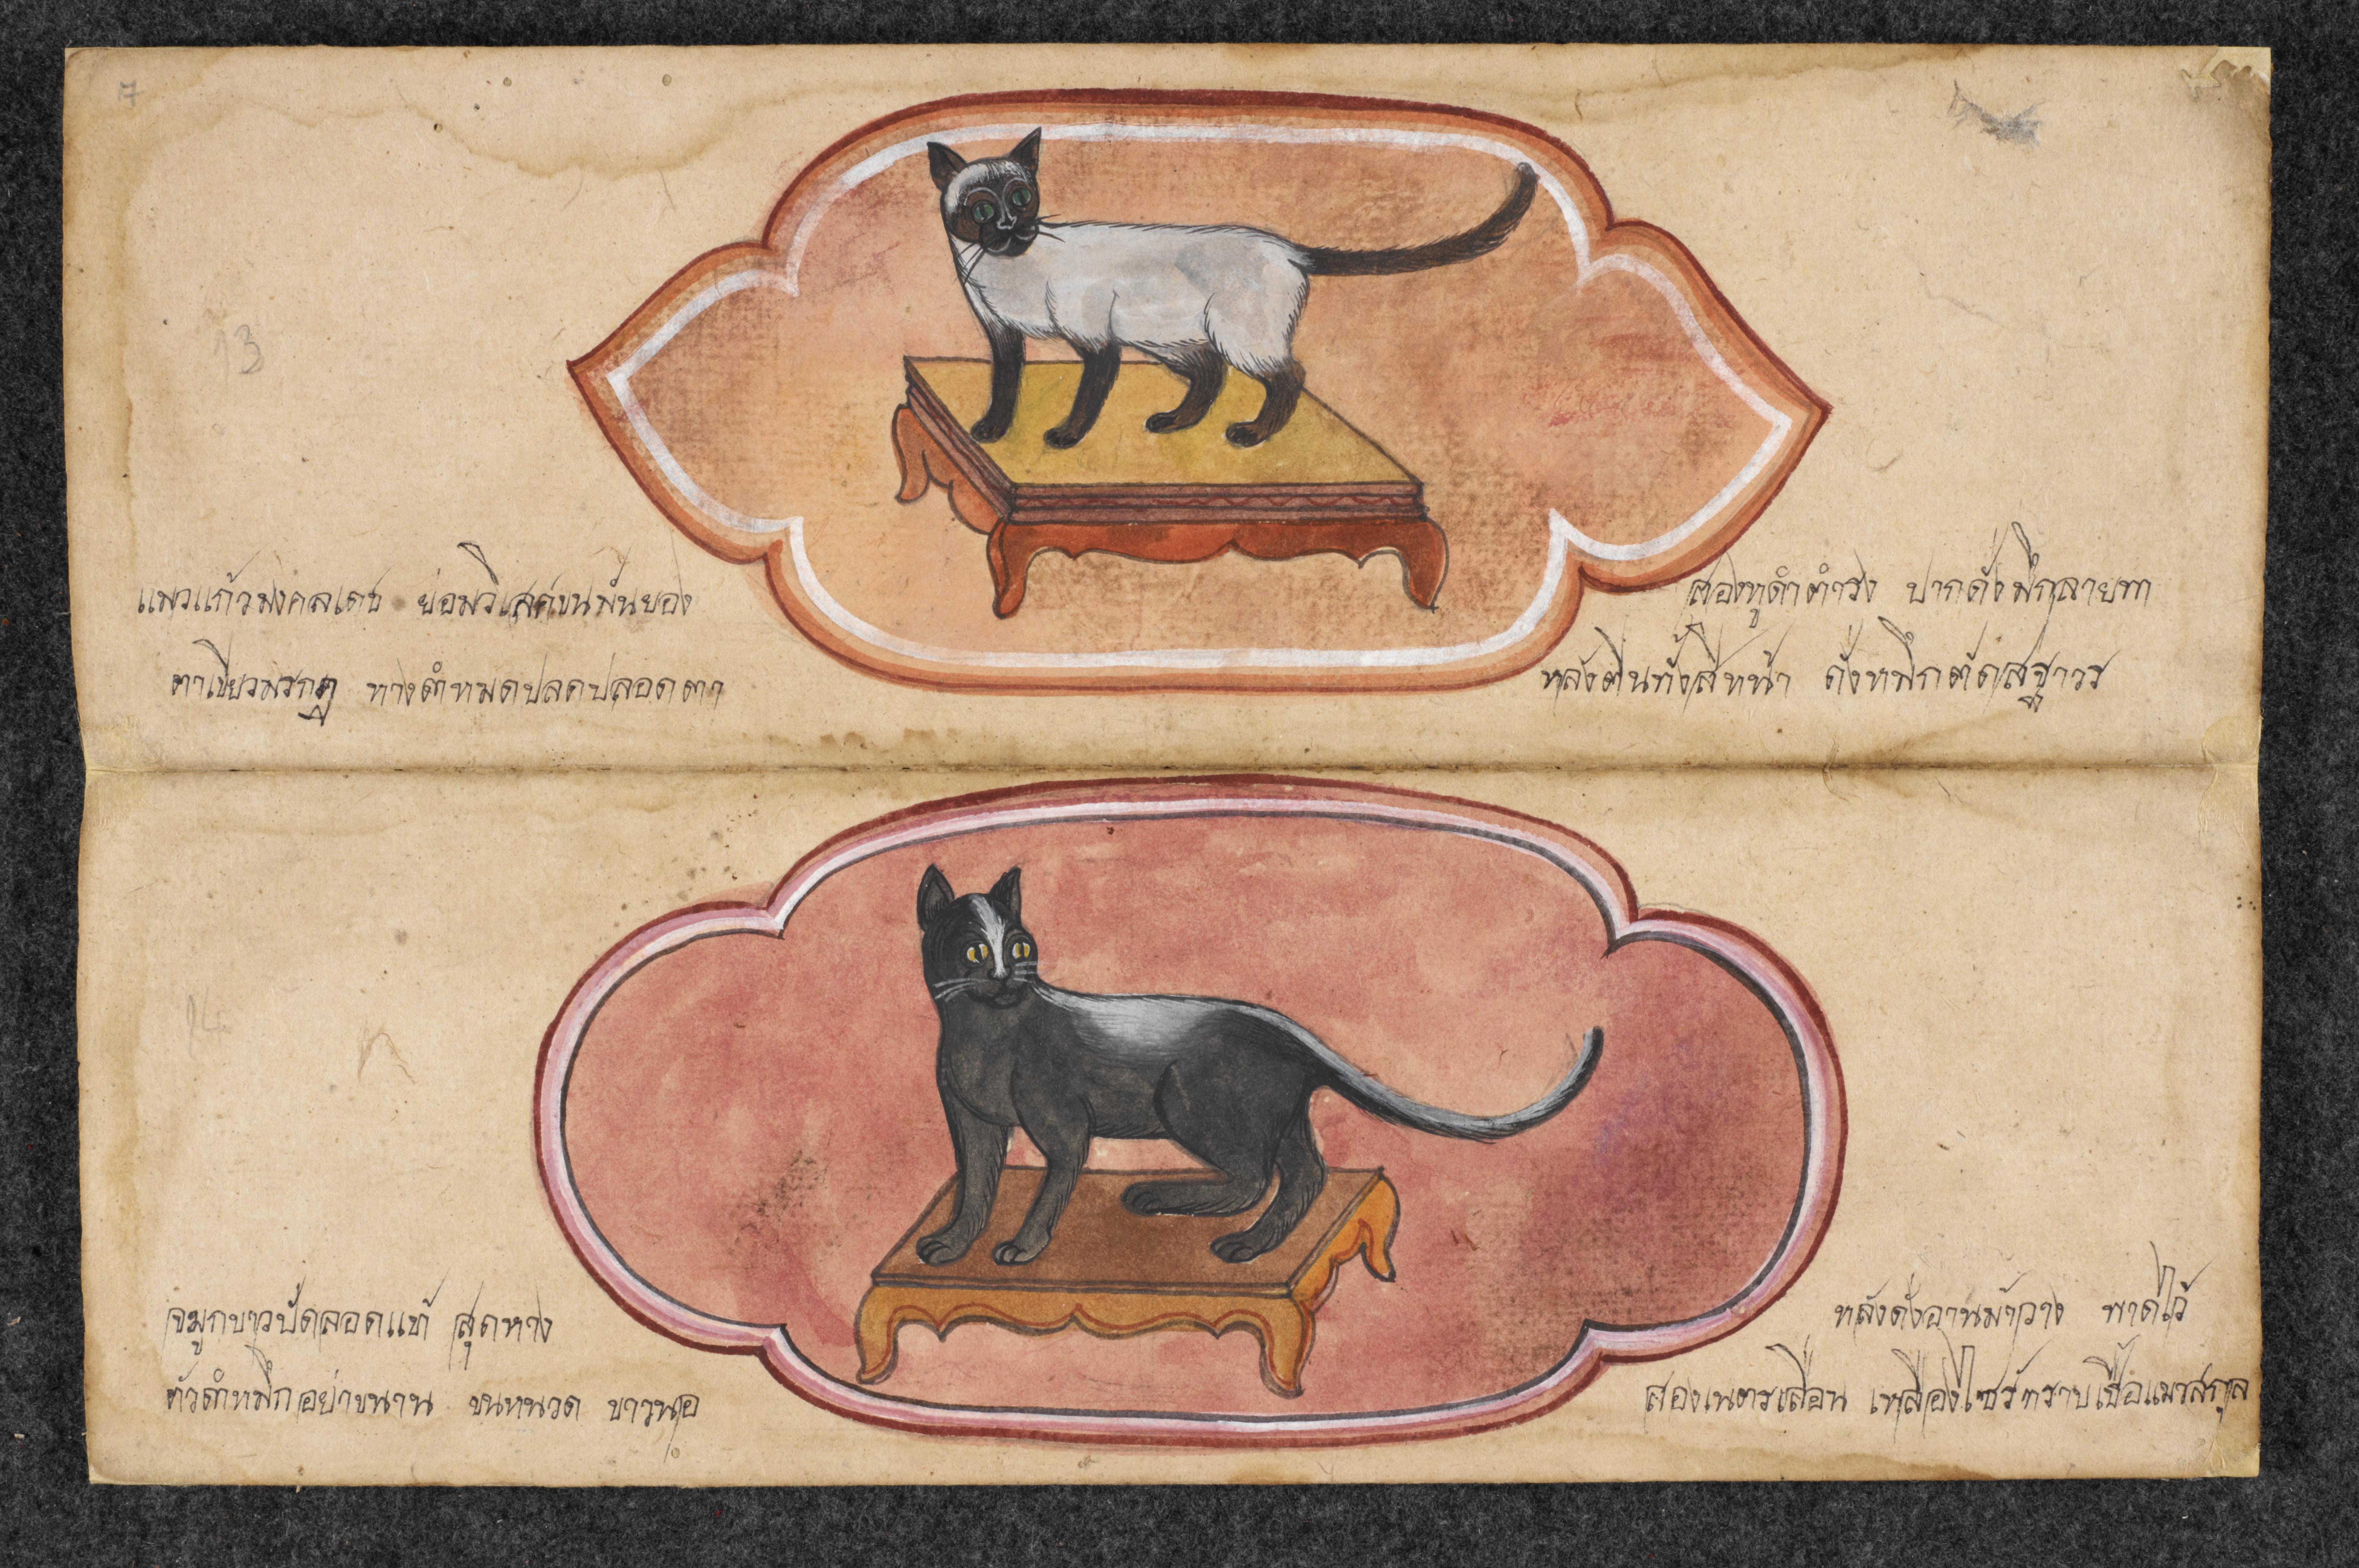 7
13
แมวแก้วมงคลเดช ย่อมวิเสศขนมันยอง
สองหูดำดำรง ปากดั่งมึกลายทา
ตาเขียวมรกฎ หางดำหมดปลดปลอดตา
หลังตีนทั้งสี่หน้า ดั่งหมึกตัดสฐาวร
14
จมูกขาวปัดลอดแท้ สุดหาง
หลังดั่งอานม้าวาง พาดไว้
ตัวดำหมึกอย่าขนาน ขนหนวด ขาวนอ
สองเนตรเลื่อน เหลืองไซร้ทราบเชื้อแมวสกุล